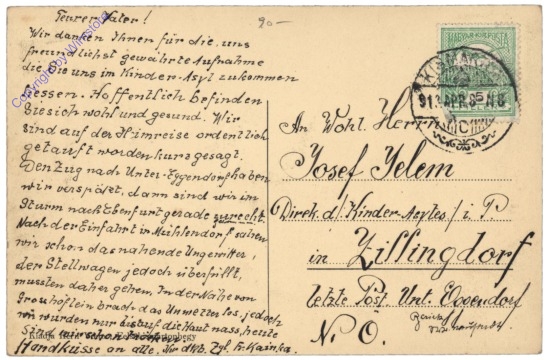 Teurer Vater!
90—
Wir danken Ihnen für die uns
freundlichst gewährte Aufnahme
die Sie uns im Kinder-Asyl zukommen
liessen. Hoffentlich befinden
Sie sich wohl und gesund. Wir
sind auf der Heimreise ordentlich
getauft worden kurz gesagt.
Den Zug nach Unter-Eggendorf haben
wir verspätet, dann sind wir im
Sturm nach Ebenfurt gerade zurecht.
Nach der Einfahrt in Mühlendorf sahen
wir schon das nahende Ungewitter,
der Stellwagen jedoch überfüllt,
mussten daher gehen. In der Nähe von
Grosshöflein brach das Unwetter los, jedoch
wir wurden nur bis auf die Haut nass, heute
sind wir schon
Handküsse an alle. Ihr dkb. Zgl. Fr. Kainka
Copyright by Wiksiora
MAGYAR KIR. POSTA
KISMARTON
913 APR. 8
5
An Wohl. Herrn
Josef Jelem
Direk. d./ Kinder-Asyles / i. P.
in Zillingdorf
letzte Post Unt. Eggendorf
N. Ö.